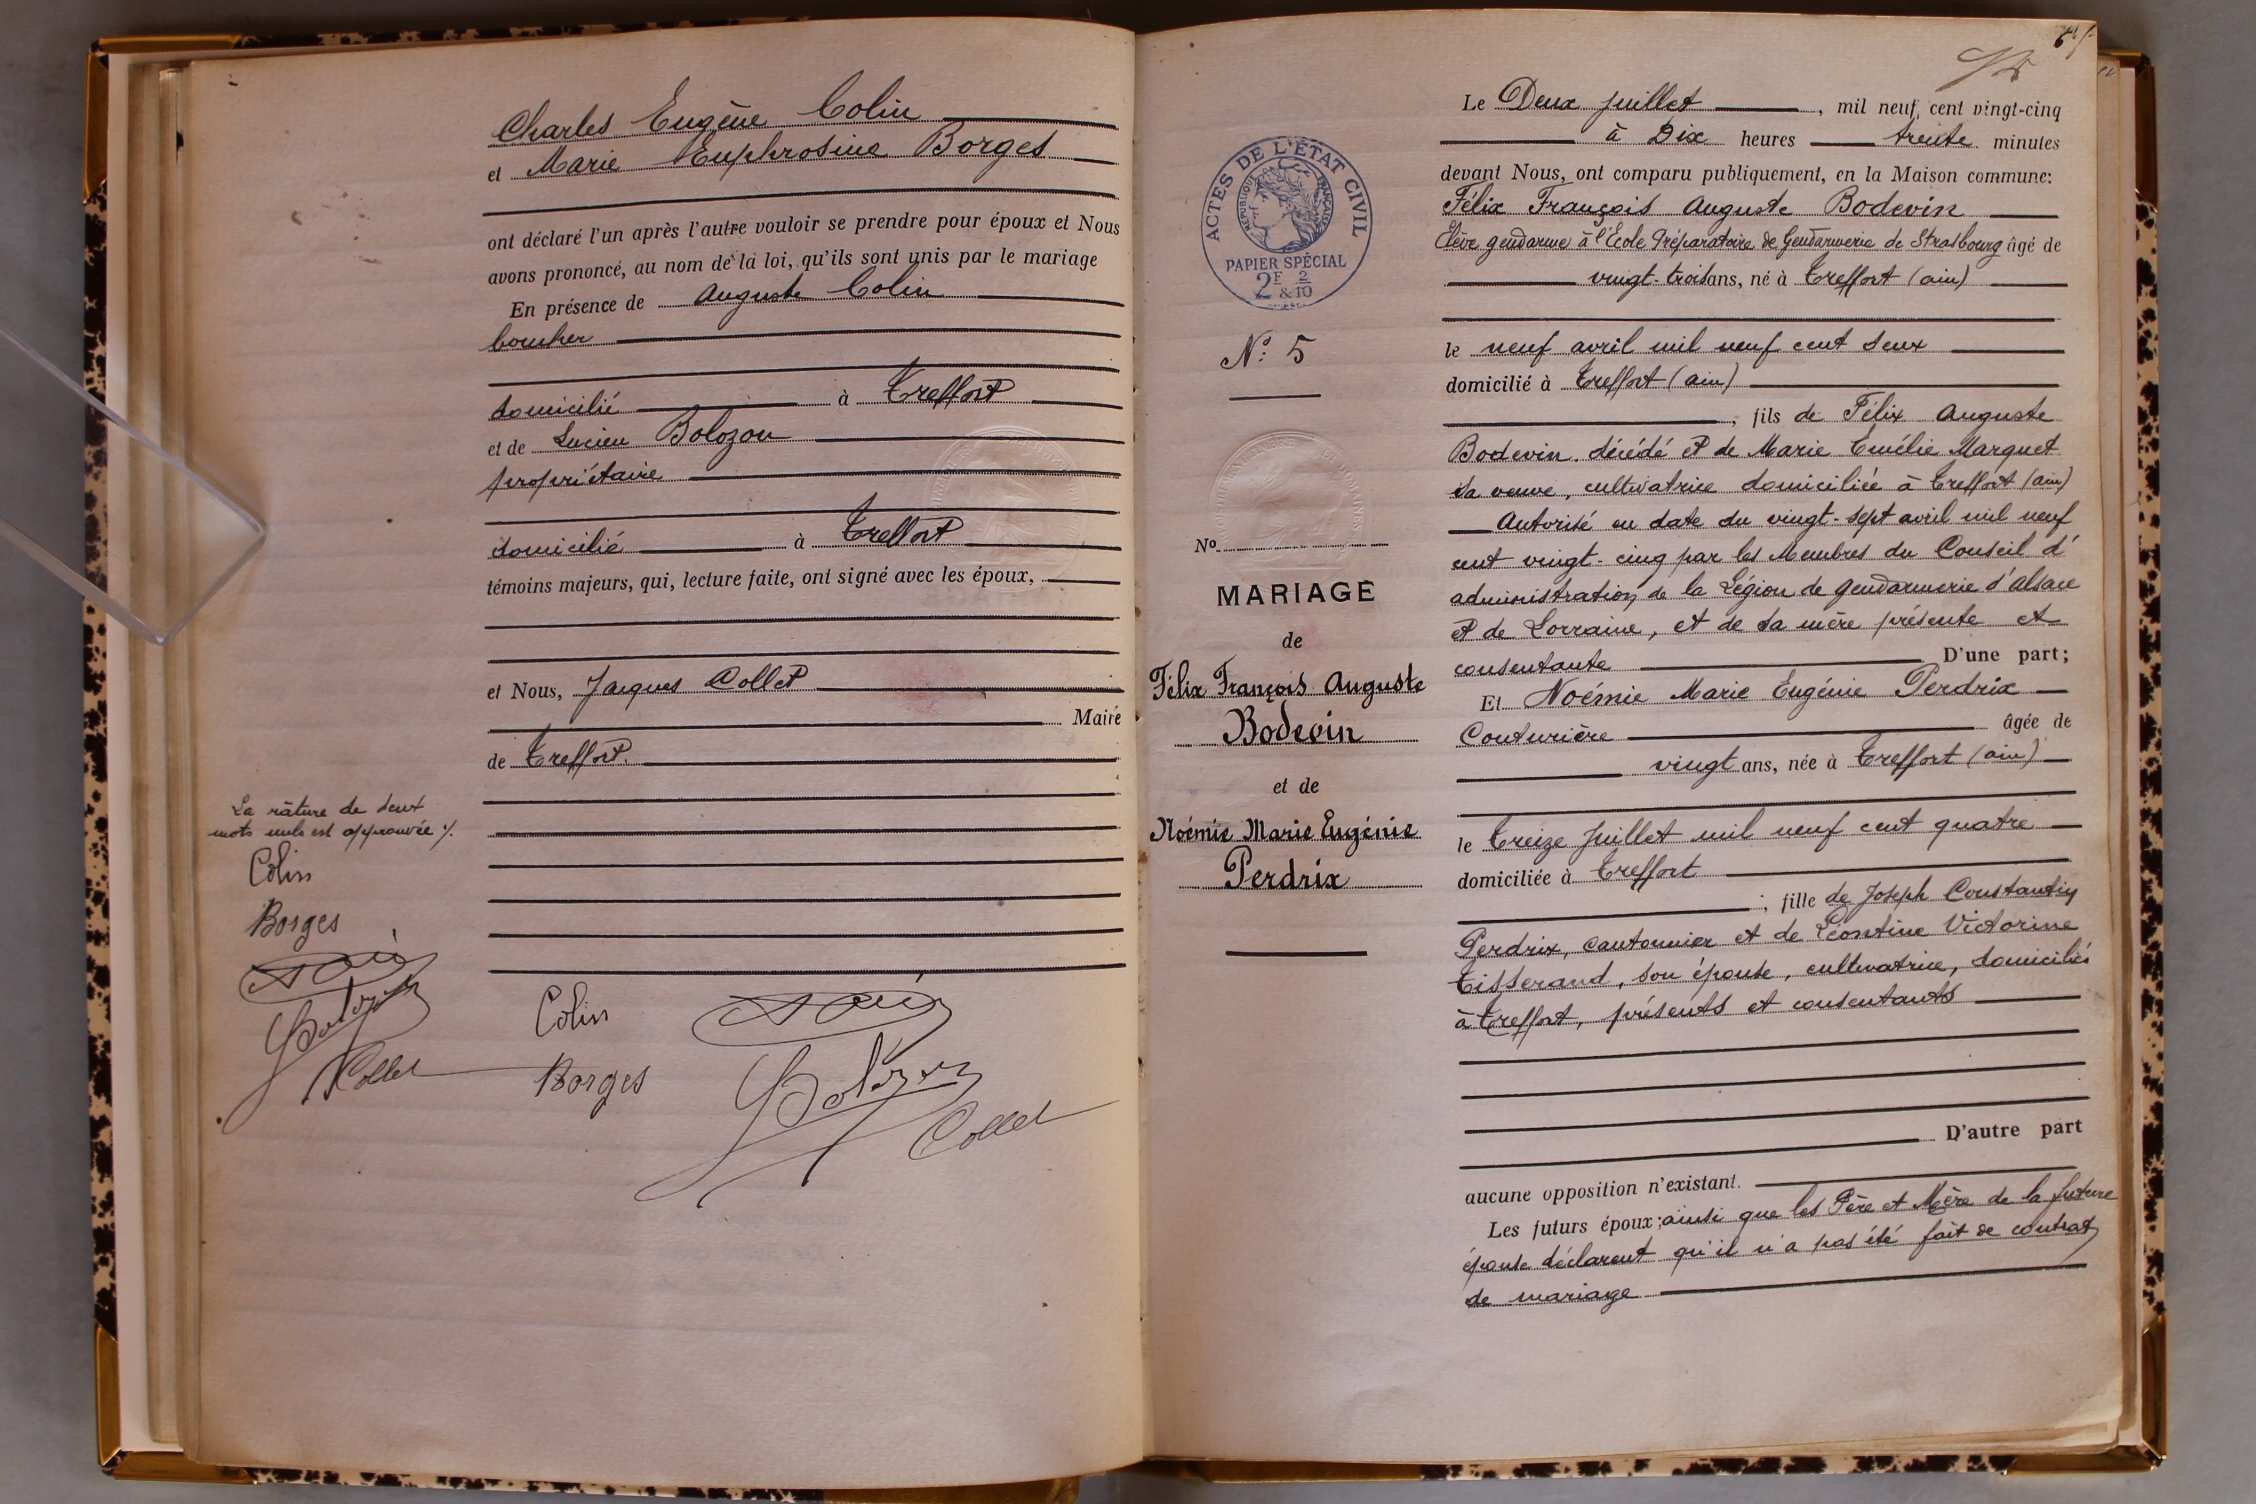 Charles Eugène Colin
et Marie Euphrosine Borges
ont déclaré l'un après l'autre vouloir se prendre pour époux et Nous
avons prononcé, au nom de la loi, qu'ils sont unis par le mariage
En présence de Auguste Colin
boucher
domicilié à Treffort
et de Lucien Bolozon
propriétaire
domicilié à Treffort
témoins majeurs, qui, lecture faite, ont signé avec les époux,
et Nous, Jacques Collet
Maire
de Treffort.
La râture de deux
mots nuls est approuvée ./.
Colin
Borges
Bolozon
Collet
Colin
Borges
Bolozon
Collet
ACTES DE L'ÉTAT CIVIL
RÉPUBLIQUE FRANÇAISE
PAPIER SPÉCIAL
2F & 2/10
N° 5
No
MARIAGE
de
Félix François Auguste
Bodevin
et de
Noémie Marie Eugénie
Perdrix
Le Deux juillet, mil neuf cent vingt-cinq
à Dix heures trente minutes
devant Nous, ont comparu publiquement, en la Maison commune:
Félix François Auguste Bodevin
Elève gendarme à l'Ecole Préparatoire de Gendarmerie de Strasbourg âgé de
vingt-trois ans, né à Treffort (ain)
le neuf avril mil neuf cent deux
domicilié à Treffort (ain)
, fils de Félix Auguste
Bodevin décédé et de Marie Emélie Marguet
sa veuve, cultivatrice domiciliée à Treffort (ain)
Autorisé en date du vingt-sept avril mil neuf
cent vingt-cinq par les Membres du Conseil d'
administration de la Légion de gendarmerie d'alsace
et de Lorraine, et de sa mère présente et
consentante D'une part;
Et Noémie Marie Eugénie Perdrix
Couturière âgée de
vingt ans, née à Treffort (ain)
le treize juillet mil neuf cent quatre
domiciliée à Treffort
; fille de Joseph Constantin
Perdrix, cantonnier et de Léontine Victorine
Tisserand, son épouse, cultivatrice, domiciliés
à Treffort, présents et consentants
D'autre part
aucune opposition n'existant.
Les futurs époux; ainsi que les Père et Mère de la future
épouse déclarent qu'il n'a pas été fait de contrat
de mariage